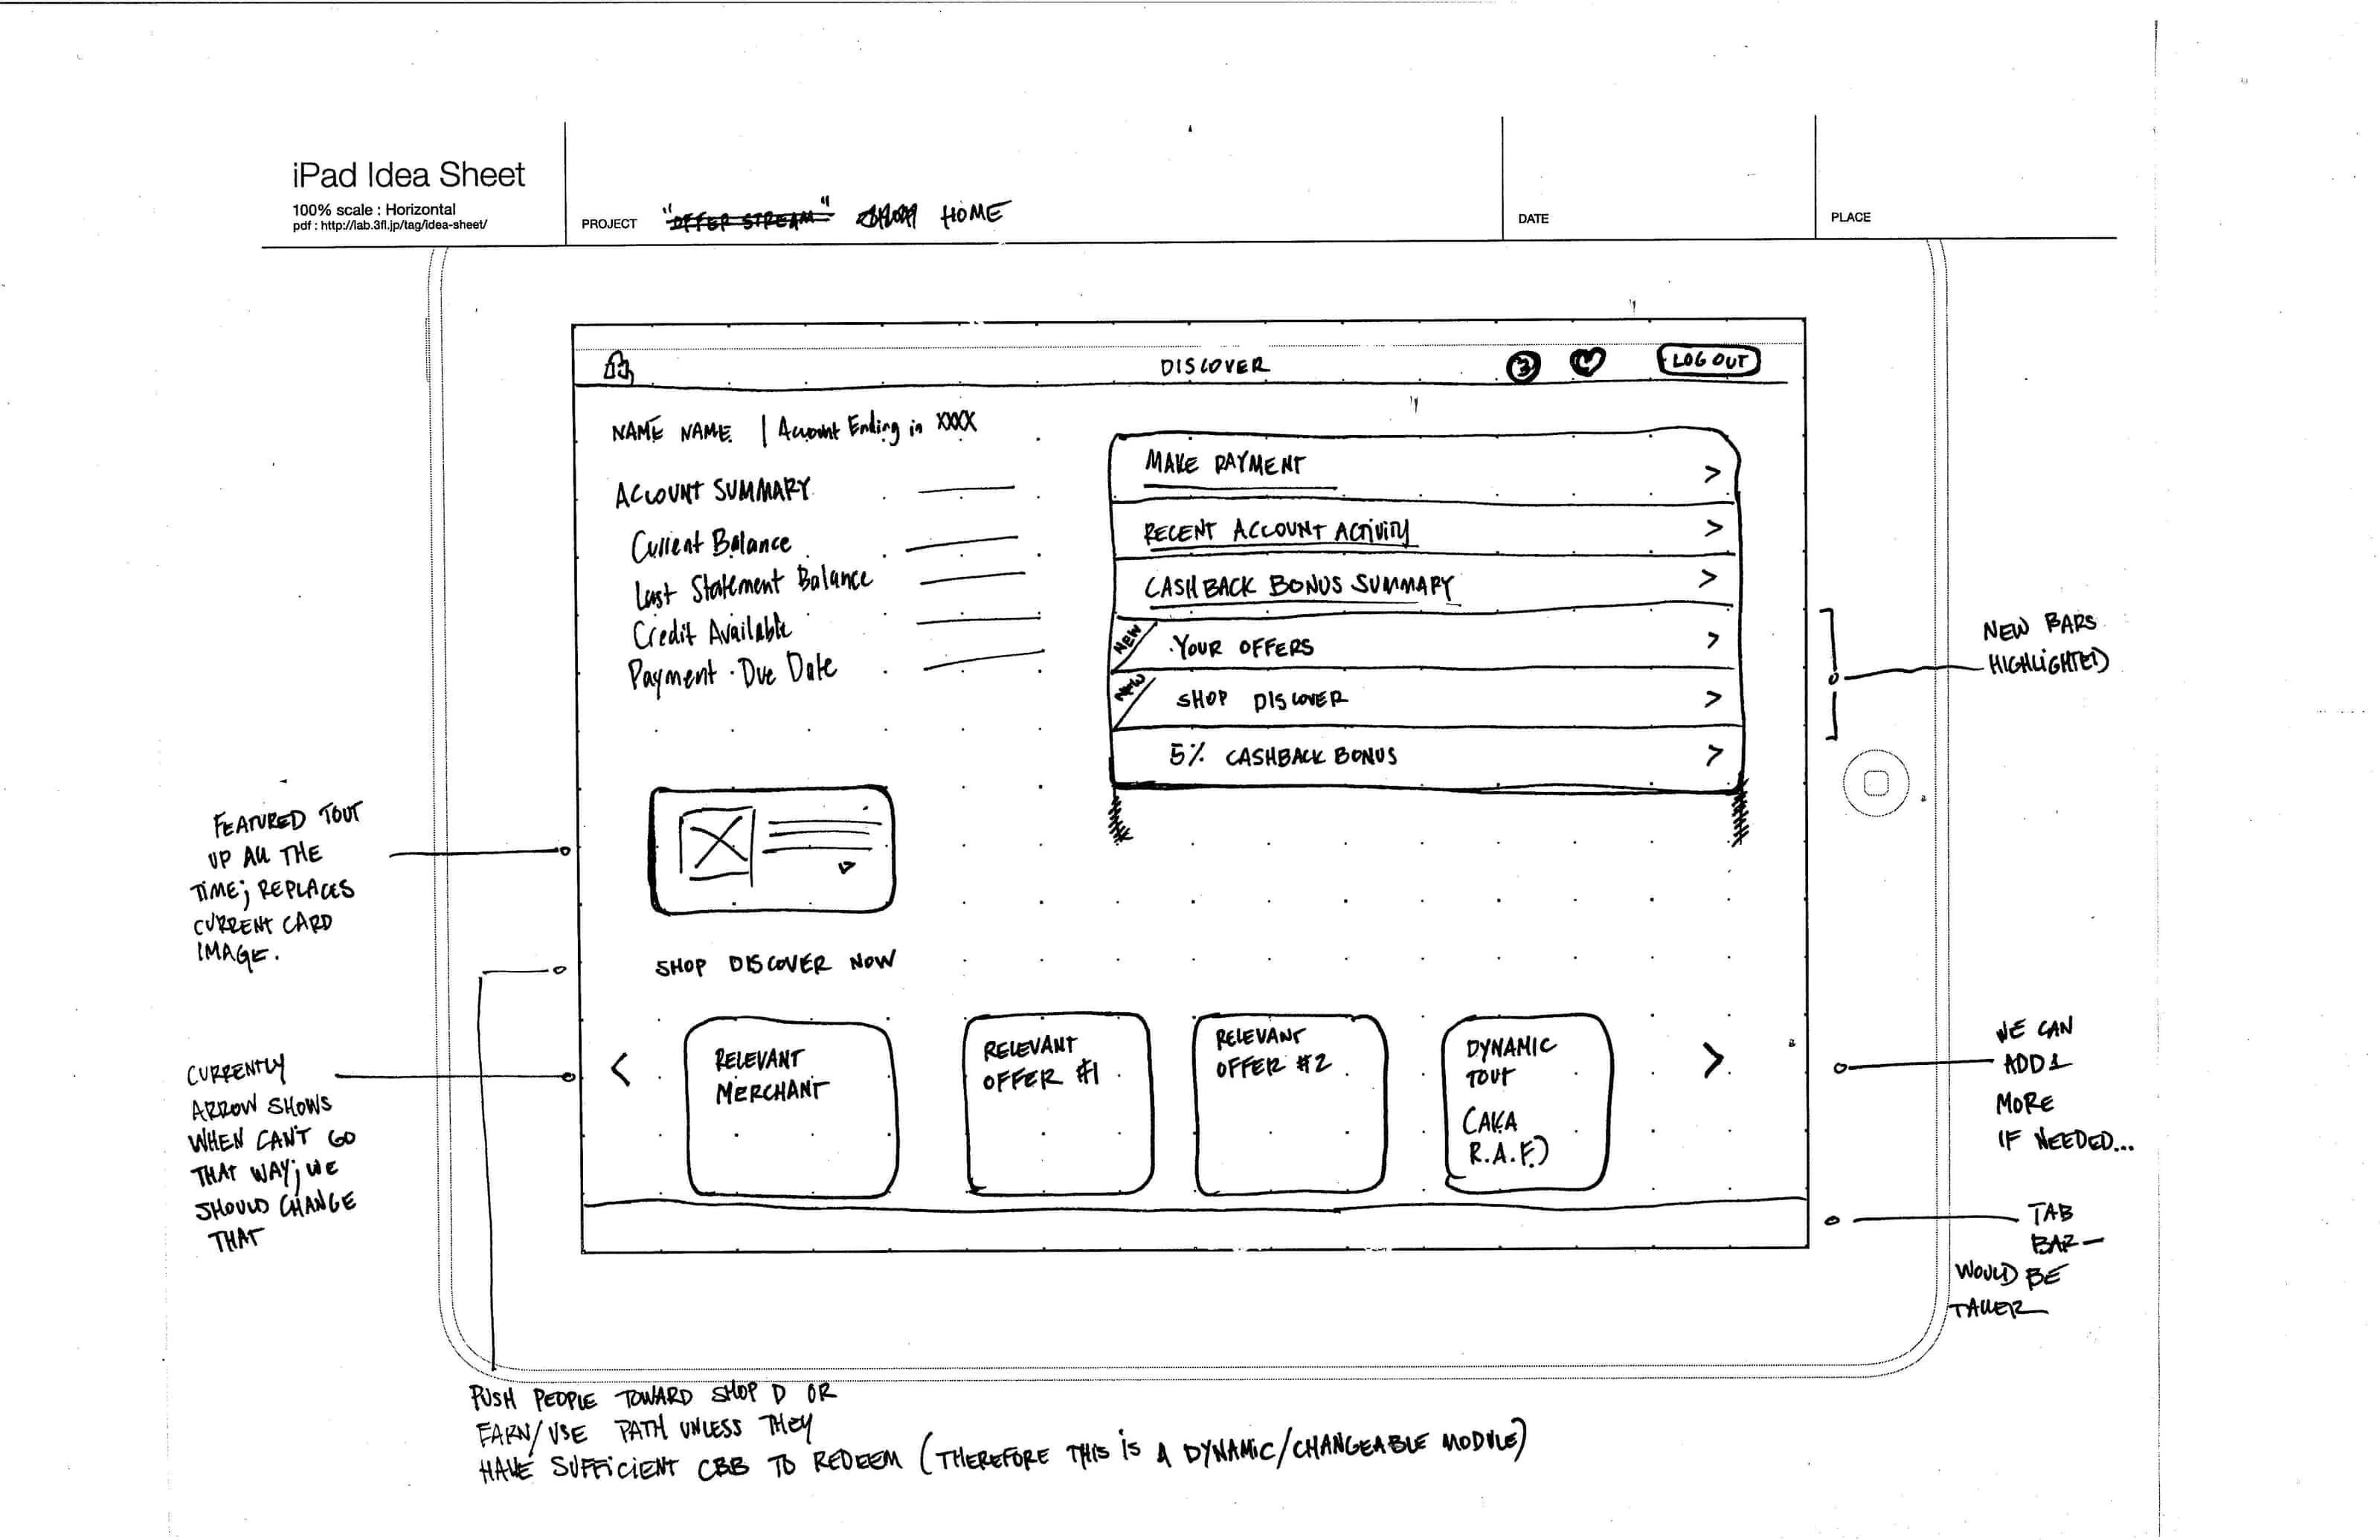 iPad Idea Sheet
100% scale : Horizontal
pdf : http://lab.3fl.jp/tag/idea-sheet/
PROJECT "OFFER STREAM" HOME
DATE
PLACE
DISCOVER
3
LOG OUT
NAME NAME | Account Ending in XXXX
ACCOUNT SUMMARY
Current Balance
Last Statement Balance
Credit Available
Payment Due Date
MAKE PAYMENT >
RECENT ACCOUNT ACTIVITY >
CASHBACK BONUS SUMMARY >
NEW YOUR OFFERS >
NEW SHOP DISCOVER >
5% CASHBACK BONUS >
NEW BARS
HIGHLIGHTED
FEATURED TOUT
UP ALL THE
TIME; REPLACES
CURRENT CARD
IMAGE.
SHOP DISCOVER NOW
CURRENTLY
ARROW SHOWS
WHEN CAN'T GO
THAT WAY; WE
SHOULD CHANGE
THAT
<
RELEVANT
MERCHANT
RELEVANT
OFFER #1
RELEVANT
OFFER #2
DYNAMIC
TOUT
(AKA
R.A.F.)
>
WE CAN
ADD 1
MORE
IF NEEDED...
TAB
BAR—
WOULD BE
TALLER
PUSH PEOPLE TOWARD SHOP D OR
EARN/USE PATH UNLESS THEY
HAVE SUFFICIENT CBB TO REDEEM (THEREFORE THIS IS A DYNAMIC/CHANGEABLE MODULE)